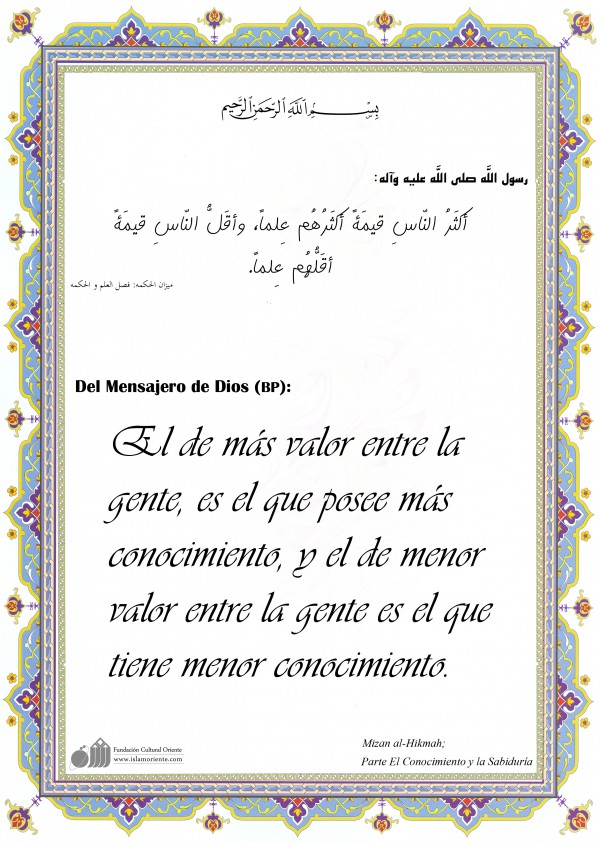 بِسْمِ اللَّهِ الرَّحْمَنِ الرَّحِيمِ
رسول اللَّه صلى اللَّه عليه وآله:
أكثَرُ النّاسِ قيمَةً أكثَرُهُم عِلماً، وأقَلُّ النّاسِ قيمَةً
أقَلُّهُم عِلماً.
ميزان الحكمه: فصل العلم و الحكمه
Del Mensajero de Dios (BP):
El de más valor entre la
gente, es el que posee más
conocimiento, y el de menor
valor entre la gente es el que
tiene menor conocimiento.
Fundación Cultural Oriente
www.islamoriente.com
Mizan al-Hikmah;
Parte El Conocimiento y la Sabiduría